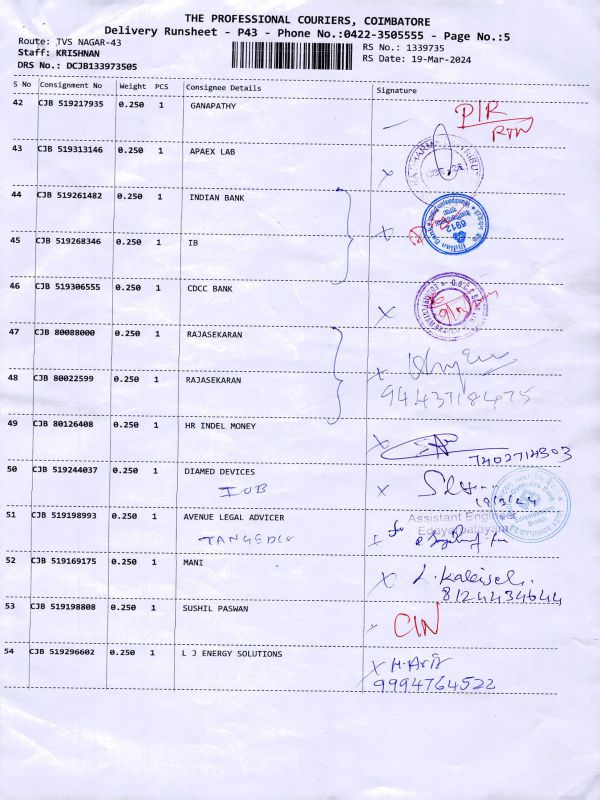 THE PROFESSIONAL COURIERS, COIMBATORE
Delivery Runsheet - P43 - Phone No.:0422-3505555 - Page No.:5
Route: TVS NAGAR-43
Staff: KRISHNAN
DRS No.: DCJB133973505
RS No.: 1339735
RS Date: 19-Mar-2024
S No Consignment No Weight PCS Consignee Details Signature
42 CJB 519217935 0.250 1 GANAPATHY
P/R
RTN
43 CJB 519313146 0.250 1 APAEX LAB
44 CJB 519261482 0.250 1 INDIAN BANK
45 CJB 519268346 0.250 1 IB
46 CJB 519306555 0.250 1 CDCC BANK
47 CJB 80088000 0.250 1 RAJASEKARAN
48 CJB 80022599 0.250 1 RAJASEKARAN
9443718475
49 CJB 80126408 0.250 1 HR INDEL MONEY
50 CJB 519244037 0.250 1 DIAMED DEVICES
IOB
19/3/24
51 CJB 519198993 0.250 1 AVENUE LEGAL ADVICER
Assistant Engineer
Edayarpalayam
for
TANGEDCO
52 CJB 519169175 0.250 1 MANI
8124434644
53 CJB 519198808 0.250 1 SUSHIL PASWAN
CIN
54 CJB 519296602 0.250 1 L J ENERGY SOLUTIONS
9994764522